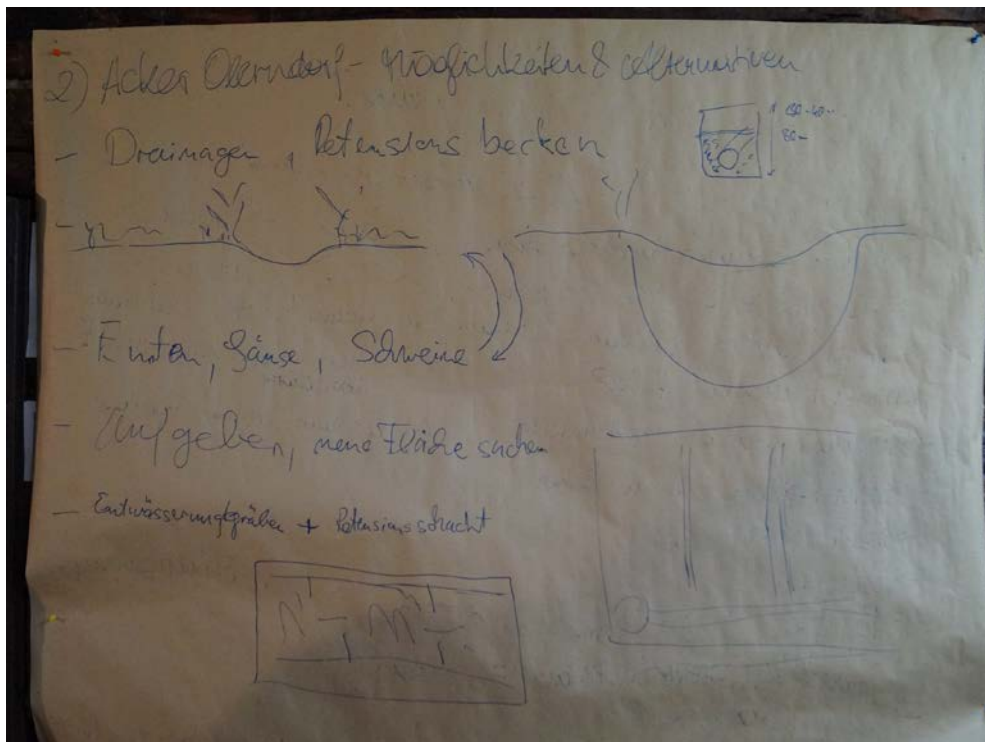 2) Acker Oberndorf - Möglichkeiten & Alternativen
- Drainagen, Retensions becken
80
- Enten, Gänse, Schweine
- Aufgeben, neue Fläche suchen
- Entwässerungsgräben + Retensionsschacht